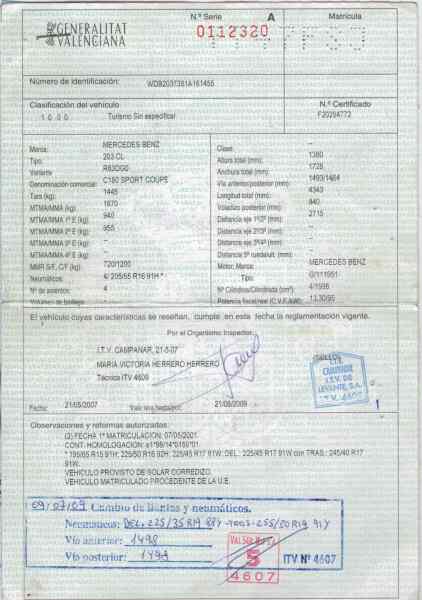 GENERALITAT
VALENCIANA
N.º Serie A
0112320
Matrícula
Número de identificación: WDB2037351A161455
Clasificación del vehículo
1000 Turismo Sin especificar
N.º Certificado
F20294772
Marca: MERCEDES BENZ
Tipo: 203 CL
Variante
Denominación comercial: C180 SPORT COUPE
Tara (kg): 1445
MTMA/MMA (kg) 1870
MTMA/MMA 1º E (kg) 940
MTMA/MMA 2º E (kg) 955
MTMA/MMA 3º E (kg) -
MTMA/MMA 4º E (kg) -
MMR S/F, C/F (kg) 720/1200
Neumáticos: 4/ 205/55 R16 91H *
Nº de asientos 4
Clase: -
Altura total (mm): 1380
Anchura total (mm): 1728
Vía anterior/posterior (mm): 1493/1464
Longitud total (mm): 4343
Voladizo posterior (mm) 840
Distancia eje 1º/2º (mm) 2715
Distancia eje 2º/3º (mm) -
Distancia eje 3º/4º (mm) -
Motor: Marca: MERCEDES BENZ
Tipo: 0/111951
Nº Cilindros/Cilindrada (cm³) 4/1998
Potencia fiscal/real (C.V.F./kW) 13,30/95
El vehículo cuyas características se reseñan, cumple en esta fecha la reglamentación vigente.
Por el Organismo Inspector,
I.T.V. CAMPANAR, 21-5-07
MARIA VICTORIA HERRERO HERRERO
Técnica ITV 4609
(SELLO)
I.T.V.
CAMPANAR
I.T.V. DE
LEVANTE, S.A.
I.T.V. 4607
Fecha: 21/05/2007 Vale hasta 21/05/2009
1
Observaciones y reformas autorizadas:
(2) FECHA 1ª MATRICULACION: 07/05/2001.
CONT. HOMOLOGACION: e1*98/14*0159*01.
* 195/65 R15 91H; 225/50 R16 92H; 225/45 R17 91W; DEL.: 225/45 R17 91W con TRAS.: 245/40 R17
91W.
VEHICULO PROVISTO DE SOLAR CORREDIZO.
VEHICULO MATRICULADO PROCEDENTE DE LA U.E.
09/07/09 Cambio de llantas y neumáticos.
Neumáticos: DEL. 225/35R19 88Y TRAS. 255/30R19 91Y
Vío anterior: 1498
Vío posterior: 1493
VALSER
5
4607
ITV Nº 4607